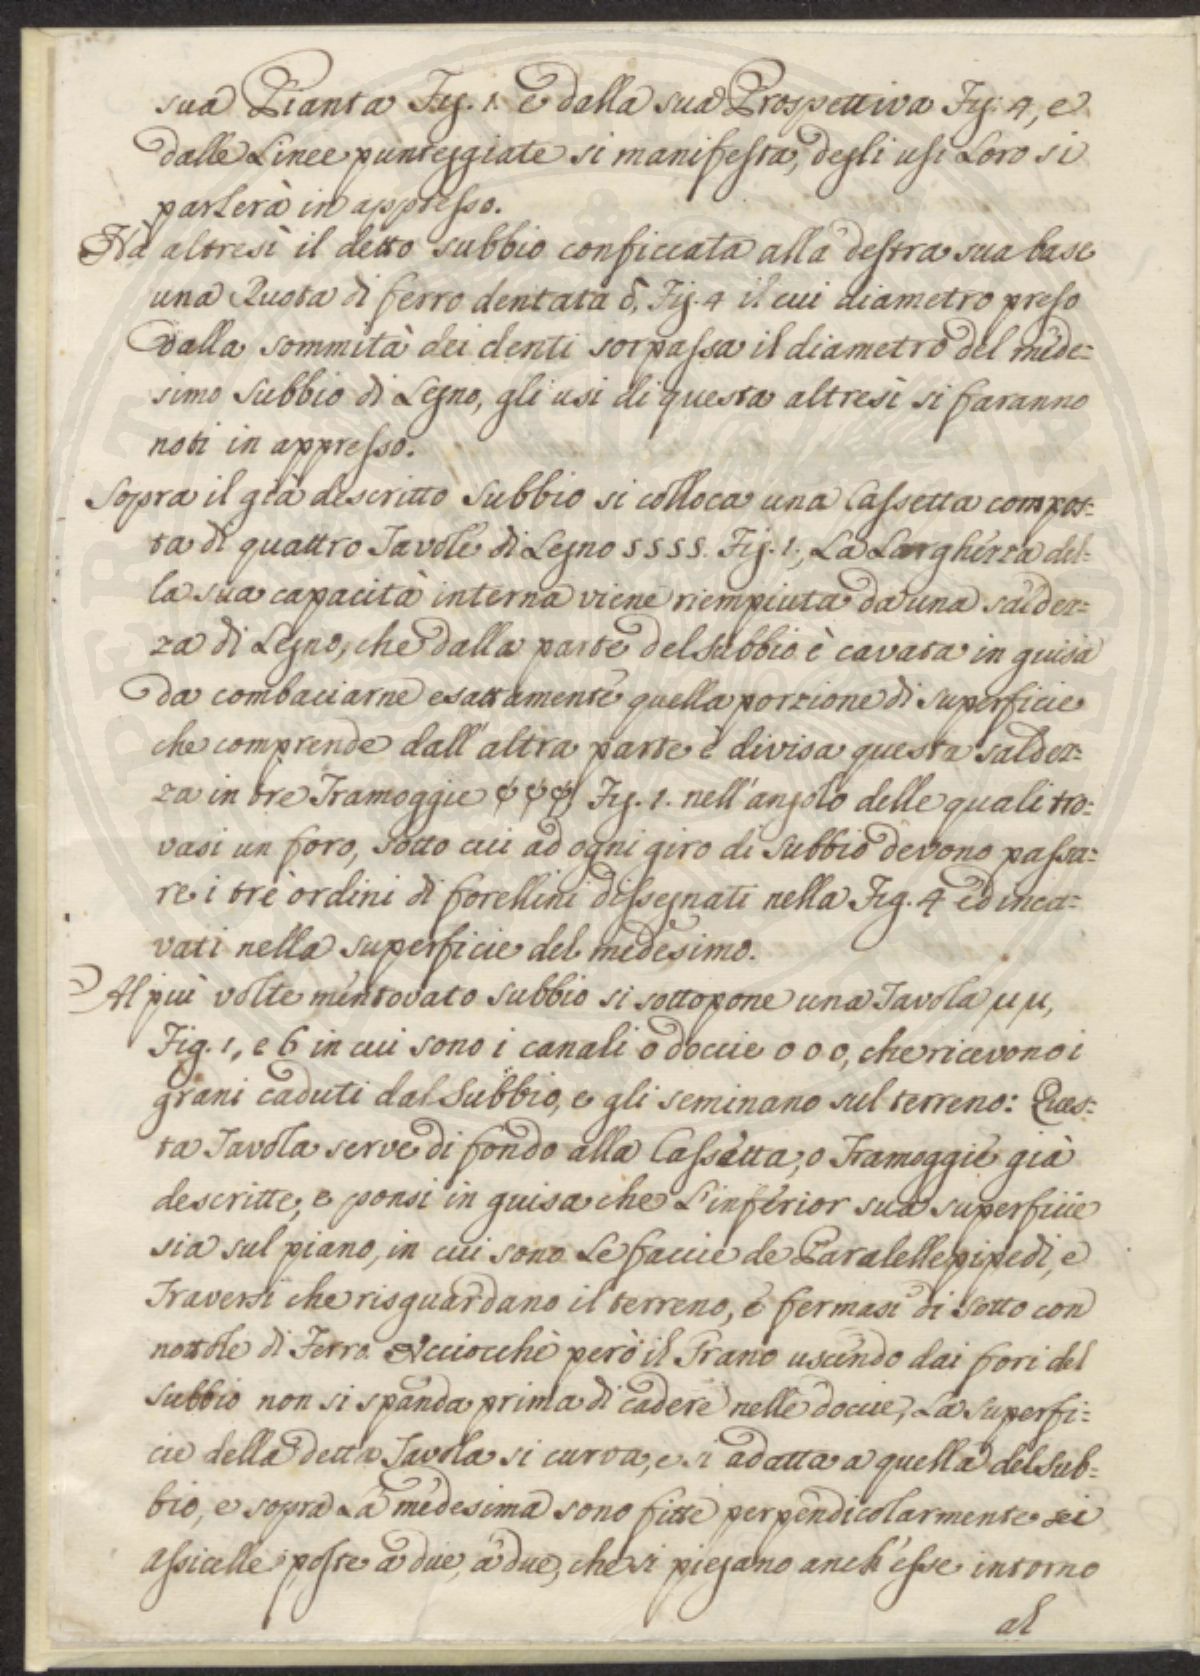 sua Pianta Fig. 1. e dalla sua Prospettiva Fig. 4, e
dalle Linee punteggiate si manifesta, degli usi Loro si
parlerà in appresso.
Hà altresì il detto subbio conficcata alla destra sua base
una Ruota di ferro dentata δ, Fig. 4 il cui diametro preso
dalla sommità dei denti sorpassa il diametro del mede=
simo Subbio di Legno, gli usi di questa altresì si faranno
noti in appresso.
Sopra il già descritto Subbio si colloca una Cassetta compos=
ta di quattro Tavole di Legno SSSS. Fig. 1., La Larghezza del=
la sua capacità interna viene riempiuta da una saldez=
za di Legno, che dalla parte del Subbio è cavata in guisa
da combaciarne esattamente quella porzione di superficie
che comprende dall'altra parte è divisa questa saldez=
za in tre Tramoggie ψψψ, Fig. 1. nell'angolo delle quali tro=
vasi un foro, sotto cui ad ogni giro di Subbio devono passa=
re i trè ordini di forellini dissegnati nella Fig. 4 ed inca=
vati nella superficie del medesimo.
Al più volte mentovato Subbio si sottopone una Tavola μμ,
Fig. 1, e 6 in cui sono i canali o doccie o o o, che ricevono i
grani caduti dal Subbio, e gli seminano sul terreno: Ques=
ta Tavola serve di fondo alla Cassetta, o Tramoggie già
descritte, e ponsi in guisa che L'inferior sua superficie
sia sul piano, in cui sono Le faccie de Paralellepipedi, e
Traversi che risguardano il terreno, e fermasi di sotto con
nottole di Ferro. Acciocchè però il Grano uscendo dai fori del
Subbio non si spanda prima di cadere nelle doccie, La superfi=
cie della detta Tavola si curva, e si adatta a quella del Sub=
bio, e sopra La medesima sono fitte perpendicolarmente sei
assicelle poste a due, a due, che si piegano anch'esse intorno
al